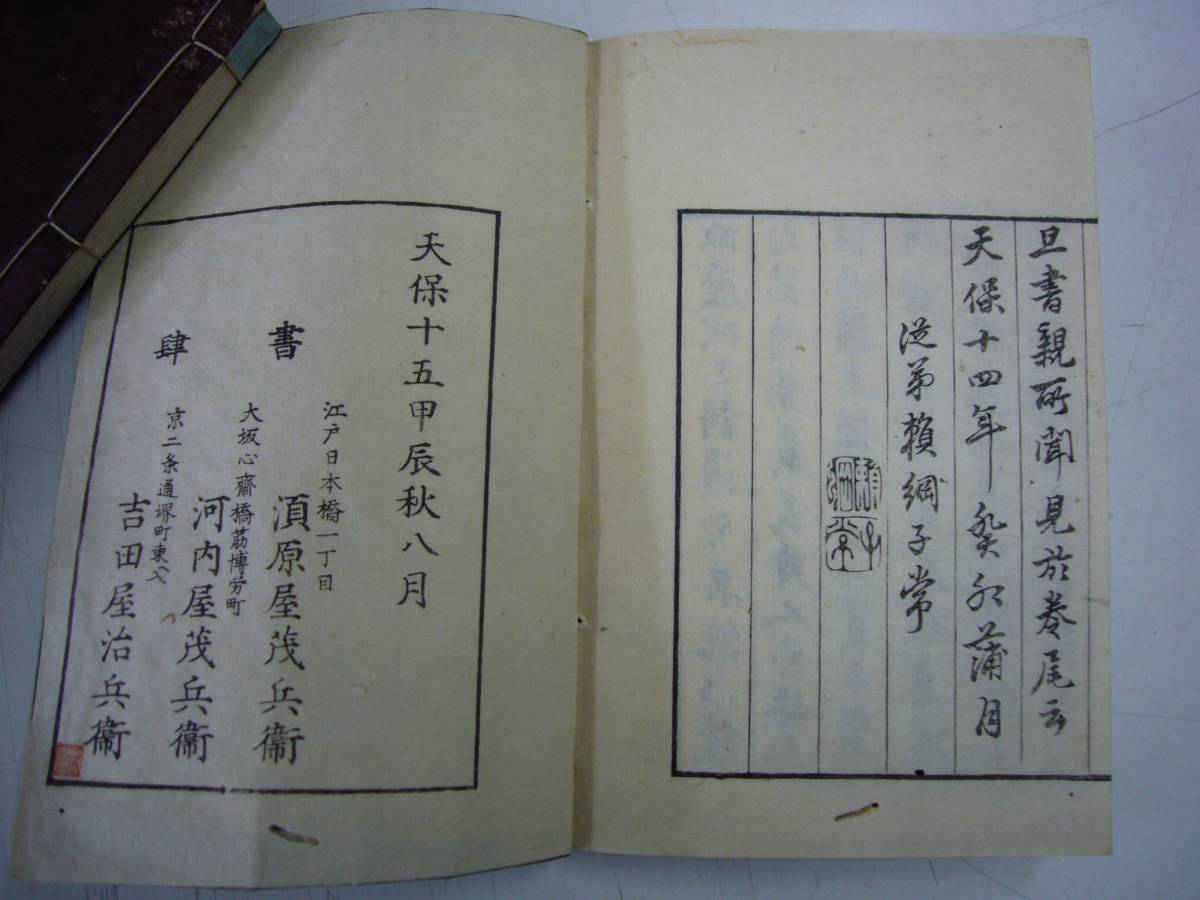 且書親所聞見於卷尾云
天保十四年癸卯蒲月
従弟頼綱子常
天保十五甲辰秋八月
書
肆
江戸日本橋一丁目
湏原屋茂兵衞
大坂心齋橋筋博労町
河内屋茂兵衞
京二条通堺町東入
吉田屋治兵衞